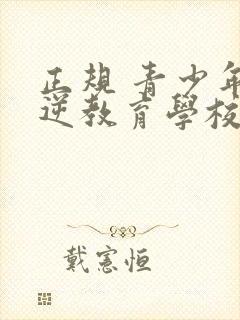 正规 青少年
逆教育學校
戴憲恒